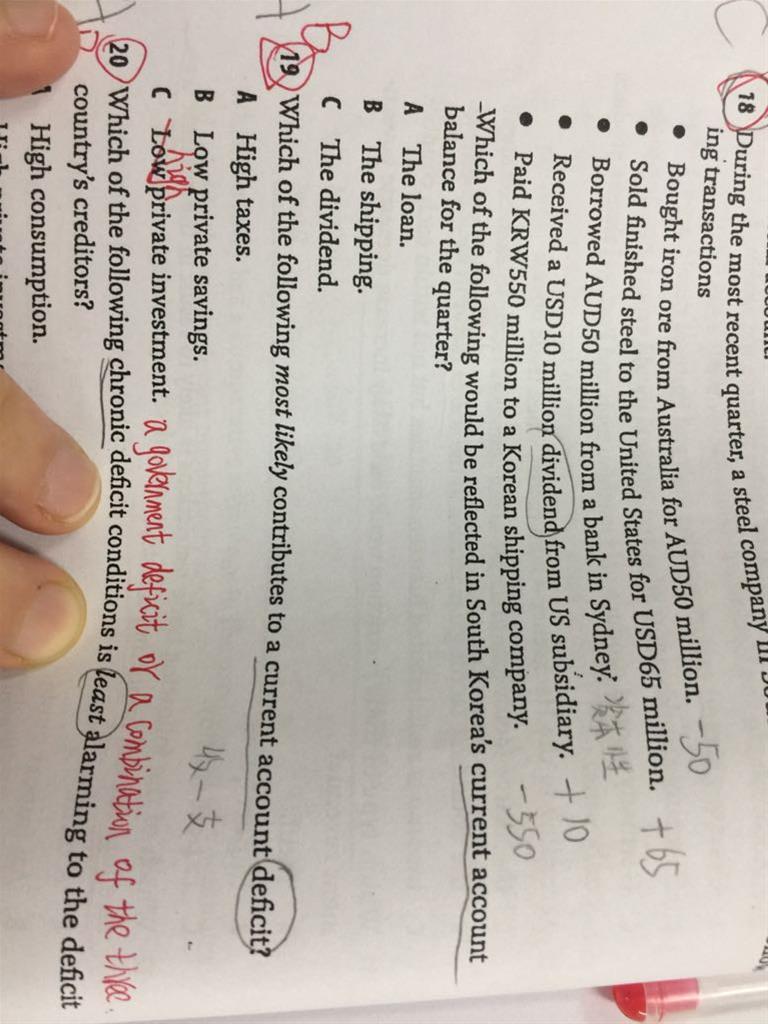 C
18 During the most recent quarter, a steel company in
ing transactions
• Bought iron ore from Australia for AUD50 million. -50
• Sold finished steel to the United States for USD65 million. +65
• Borrowed AUD50 million from a bank in Sydney. 资本性
• Received a USD10 million dividend from US subsidiary. +10
• Paid KRW550 million to a Korean shipping company. -550
Which of the following would be reflected in South Korea's current account
balance for the quarter?
A The loan.
B The shipping.
C The dividend.
B
19 Which of the following most likely contributes to a current account deficit?
A High taxes.
B Low private savings. 收-支
C Low private investment. a government deficit or a combination of the three.
high
20 Which of the following chronic deficit conditions is least alarming to the deficit
country's creditors?
High consumption.